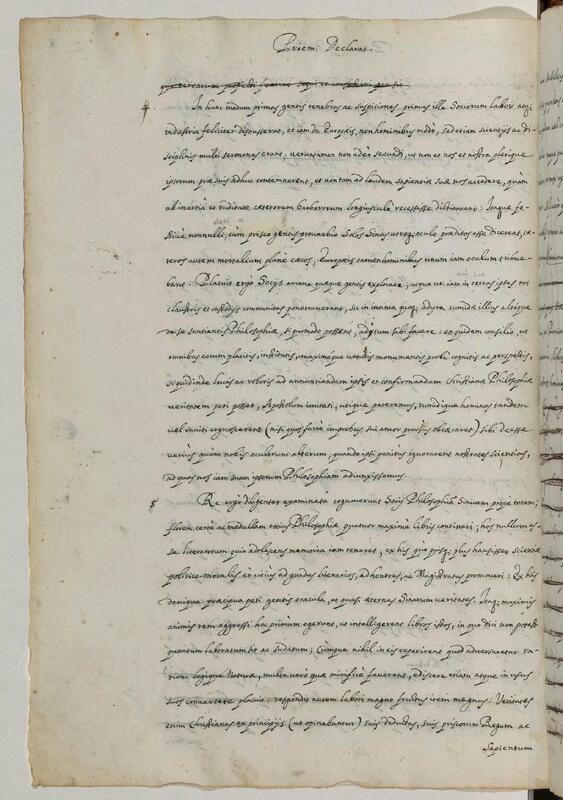 Proëm. Declarat.
4. In hunc modum primas gentis tenebras ac suspitiones primus ille Sociorum labor atq;
industria feliciter discusserat, et iam de Europæis, non hominibus modò, sed etiam scientijs ac di-
sciplinis multi sermones erant, verumtamen non adeò secundi, ut non et nos et nostra plerique
ipsorum præ suis adhuc contemnerent, et non tam ad laudem sapientiæ suæ nos accedere, quàm
ab inertia et ruditate cæterorum barbarorum longiusculè recessisse dictitarent: Itaque fe-
stivè nonnulli, cùm prisco gentis proverbio Solos Sinas utroq; oculo præditos esse dicerent, cæ-
teros autem mortalium planè cæcos, Europæis tamen hominibus unum iam oculum tribue-
bant: Placuit ergo Socijs arcana quæque gentis explorare; ac que uti iam in terras ipsas tot
claustris et custodijs communitas penetraverant, sic in intima quoq; adyta tumidæ illius altéque
de se sentientis Philosophiæ, si quomodo possent, aditum sibi facere: eo quidem consilio, ut
omnibus eorum placitis, institutis, maximéque vetustis monumentis probè cognitis ac perspectis,
siquid inde lucis ac roboris ad annuntiandam ipsis et confirmandam Christianæ Philosophiæ
veritatem peti posset, Apostolum imitati, utique peteremus, tumidique homines tandem
vel inviti cognoscerent (nisi quos fortè improbus sui amor prorsus obcæcaret) sibi deesse
verius quàm nobis oculorum alterum, quando ipsi penitus ignorarent nostrates scientias,
ad quas nos iam suam ipsorum Philosophiam adiunxissemus.
5 Re ergo diligenter examinatâ cognoverunt Socij Philosophiã Sinicam propè totam,
florem certè ac medullam totius Philosophiæ quatuor maximè libris contineri; hos nullum es-
se literatorum quin adolescens memoria iam teneret, ex his quo quisq; plus hausisset scientiæ
politico-moralis eò citiùs ad gradus literarios, ad honores, ac Magistratus promoveri: Ex his
denique præcipua peti gentis oracula, et quasi æternas Sinarum veritates. Itaq; maximis
animis rem aggressi hoc primùm egerunt, ut intelligerent libros istos, in quo dici non potest
quantum laboratum sit ac sudatum; Cùmque nihil in eis reperirent quod adversaretur ra-
tioni legique Naturæ, multa verò quæ mirificè faverent, ediscere etiam atque in usus
suos convertere placuit: respondit autem labori magno fructus item magnus: Veritates
enim Christianas ex principijs (ut opinabantur) suis deductas, suis priscorum Regum ac
Sapientum